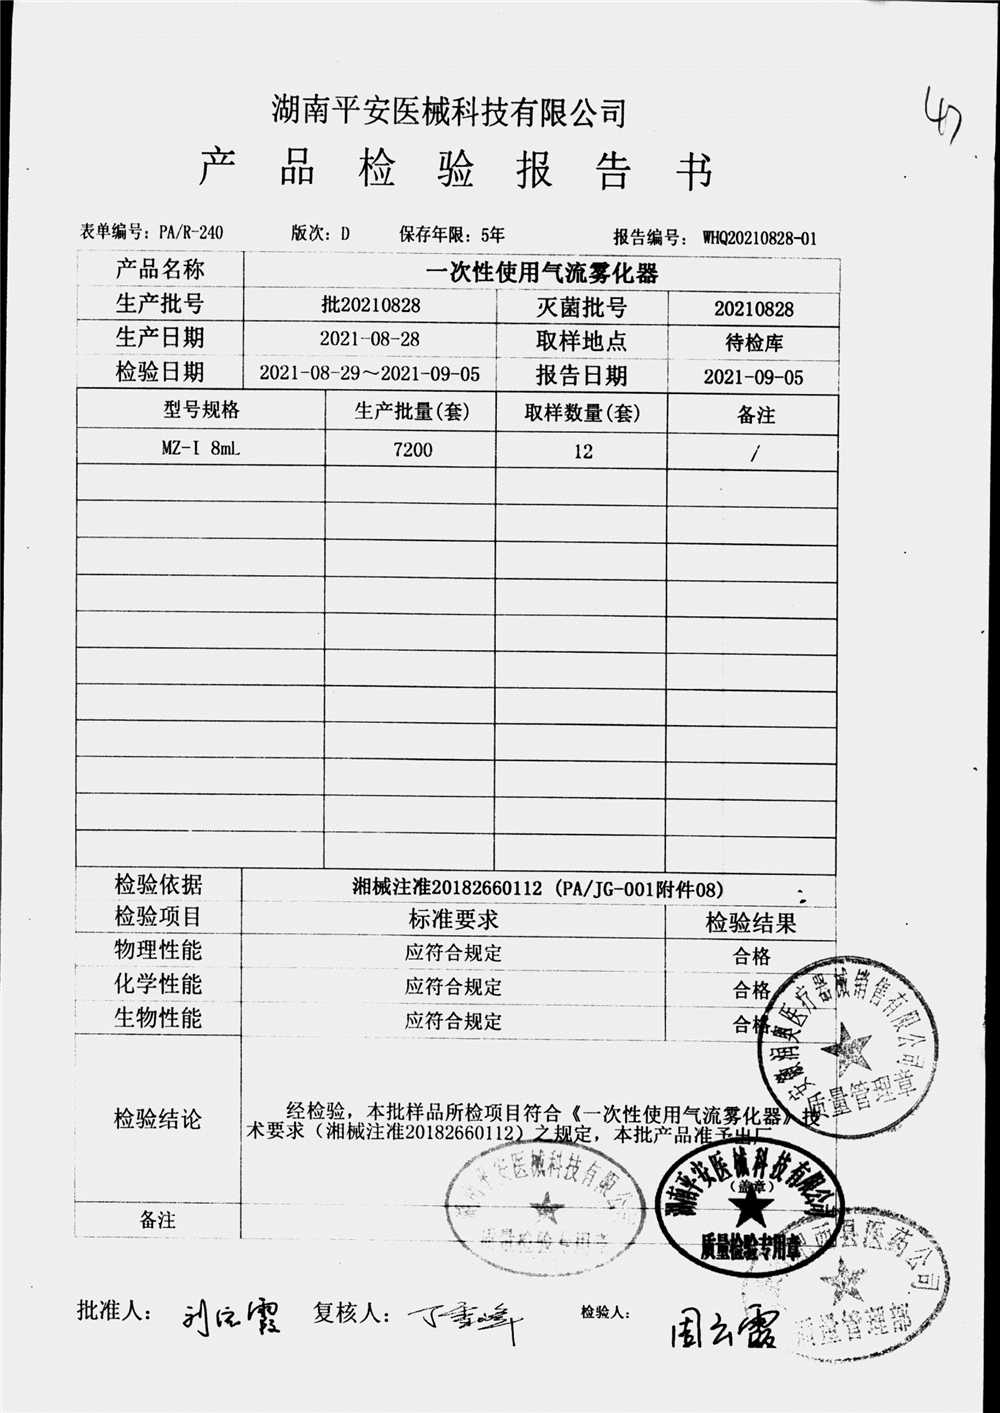 47
湖南平安医械科技有限公司
产品检验报告书
表单编号：PA/R-240 版次：D 保存年限：5年 报告编号：WHQ20210828-01
产品名称 一次性使用气流雾化器
生产批号 批20210828 灭菌批号 20210828
生产日期 2021-08-28 取样地点 待检库
检验日期 2021-08-29～2021-09-05 报告日期 2021-09-05
型号规格 生产批量(套) 取样数量(套) 备注
MZ-I 8mL 7200 12 /
检验依据 湘械注准20182660112 (PA/JG-001附件08)
检验项目 标准要求 检验结果
物理性能 应符合规定 合格
化学性能 应符合规定 合格
生物性能 应符合规定 合格
检验结论 经检验，本批样品所检项目符合《一次性使用气流雾化器》技
术要求（湘械注准20182660112）之规定，本批产品准予出厂
（盖章）
备注
医疗器械销售有限公司
质量管理章
平安医械科技有限公司
质量检验专用章
湖南平安医械科技有限公司
质量检验专用章
县医药公司
质量管理部
批准人： 复核人： 检验人：周云霞